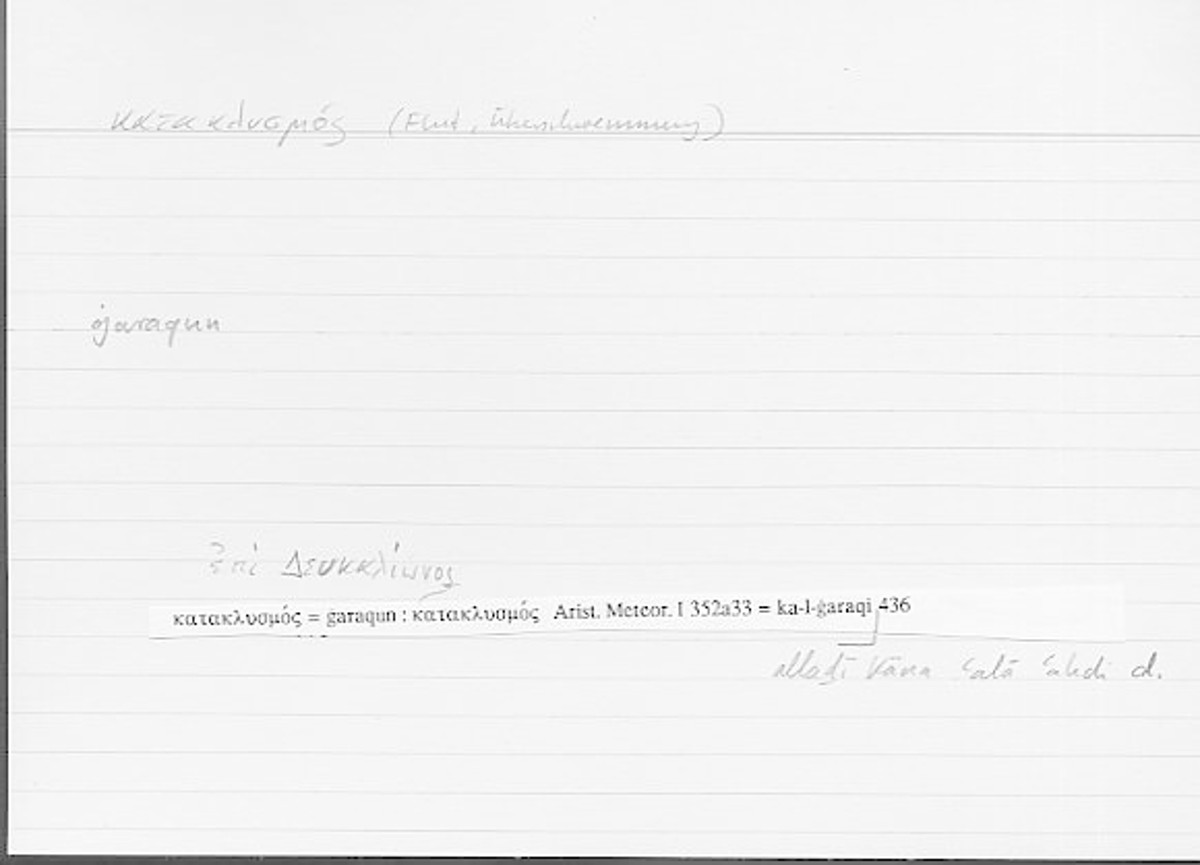 κατακλυσμός (Flut, Überschwemmung)
ġaraqun
ἐπὶ Δευκαλίωνος
κατακλυσμός = ġaraqun : κατακλυσμός Arist. Meteor. I 352a33 = ka-l-ġaraqi 436
allaḏī kāna ʿalā ʿahdi d.